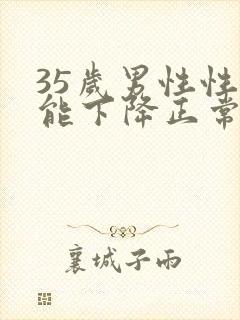 35岁男性性
能下降正常
襄城子雨